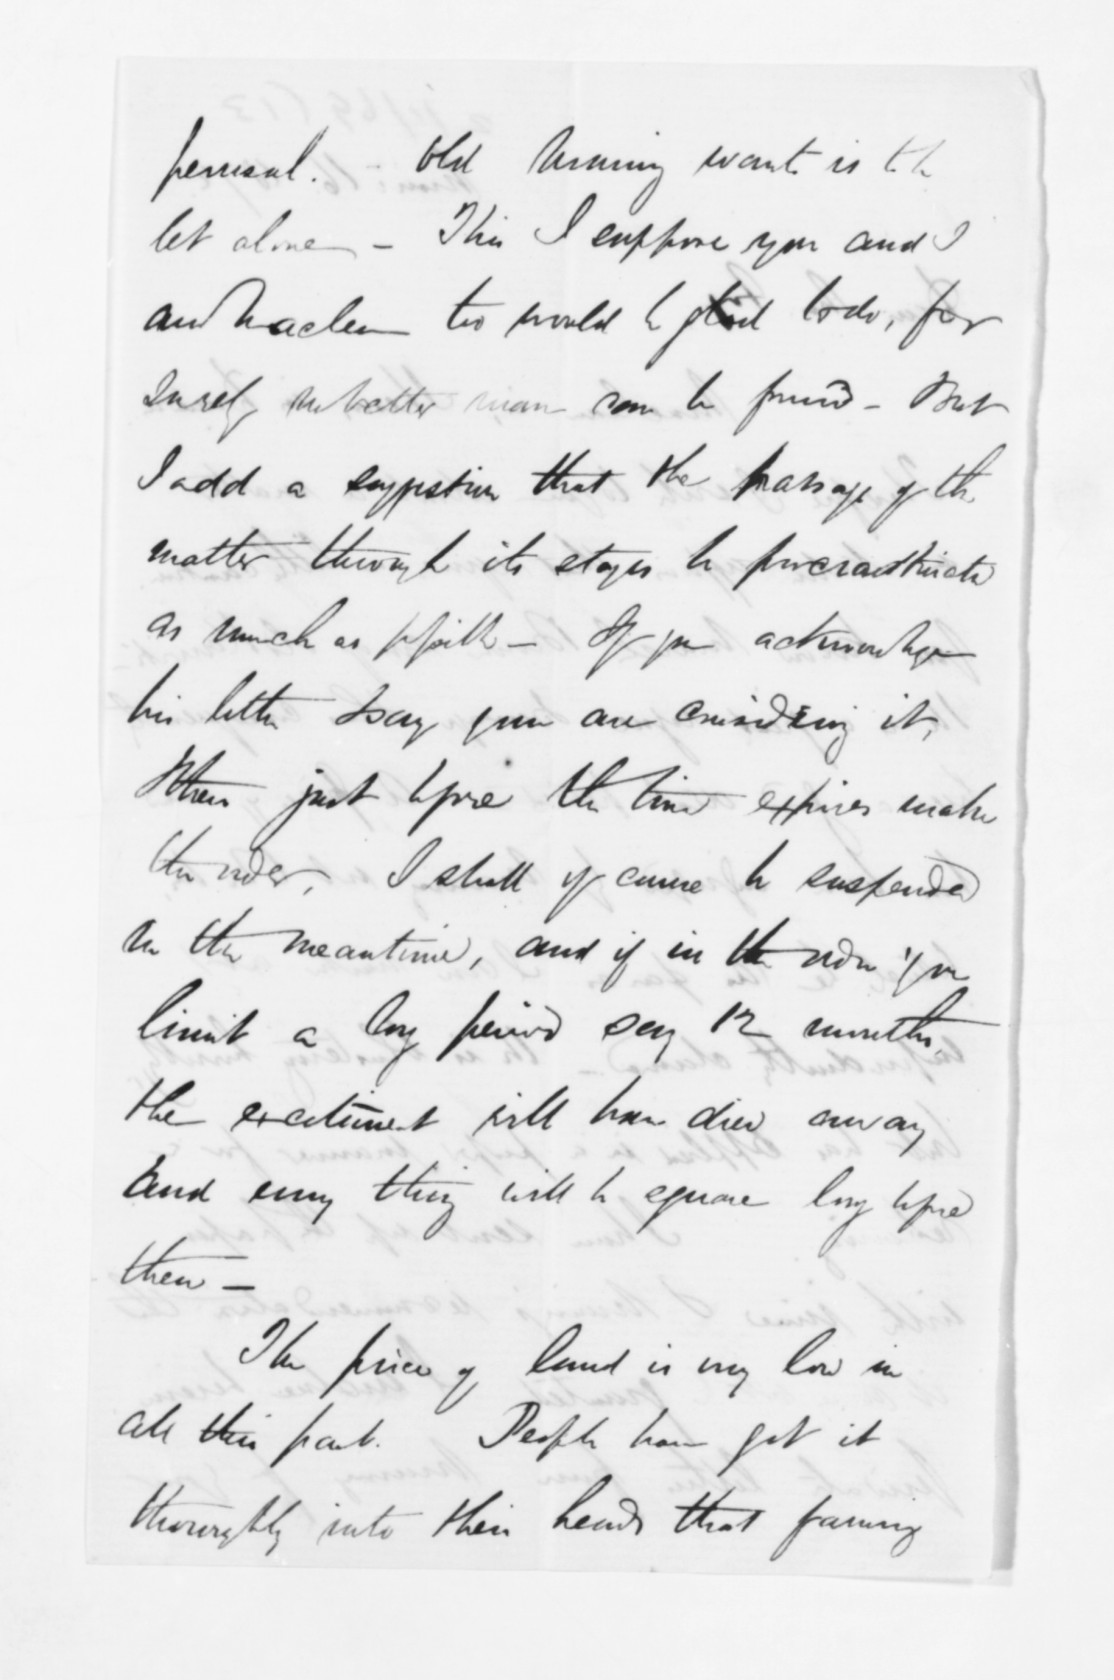 perusal. Old wants is to be
let alone – This I suppose you and I
and Maclean too would be glad to do, for
surely no better man can be found – But
I add a suggestion that the passage of the
matter through its stages be procrastinated
as much as possible – If you acknowledge
his letter say you are considering it,
then just before the time expires make
the order, I shall of course be suspended
in the meantime, and if in the order you
limit a long period say 12 months,
the excitement will have died away
and every thing will be square long before
then –
The price of land is very low in
all this part. People have got it
thoroughly into their heads that farming